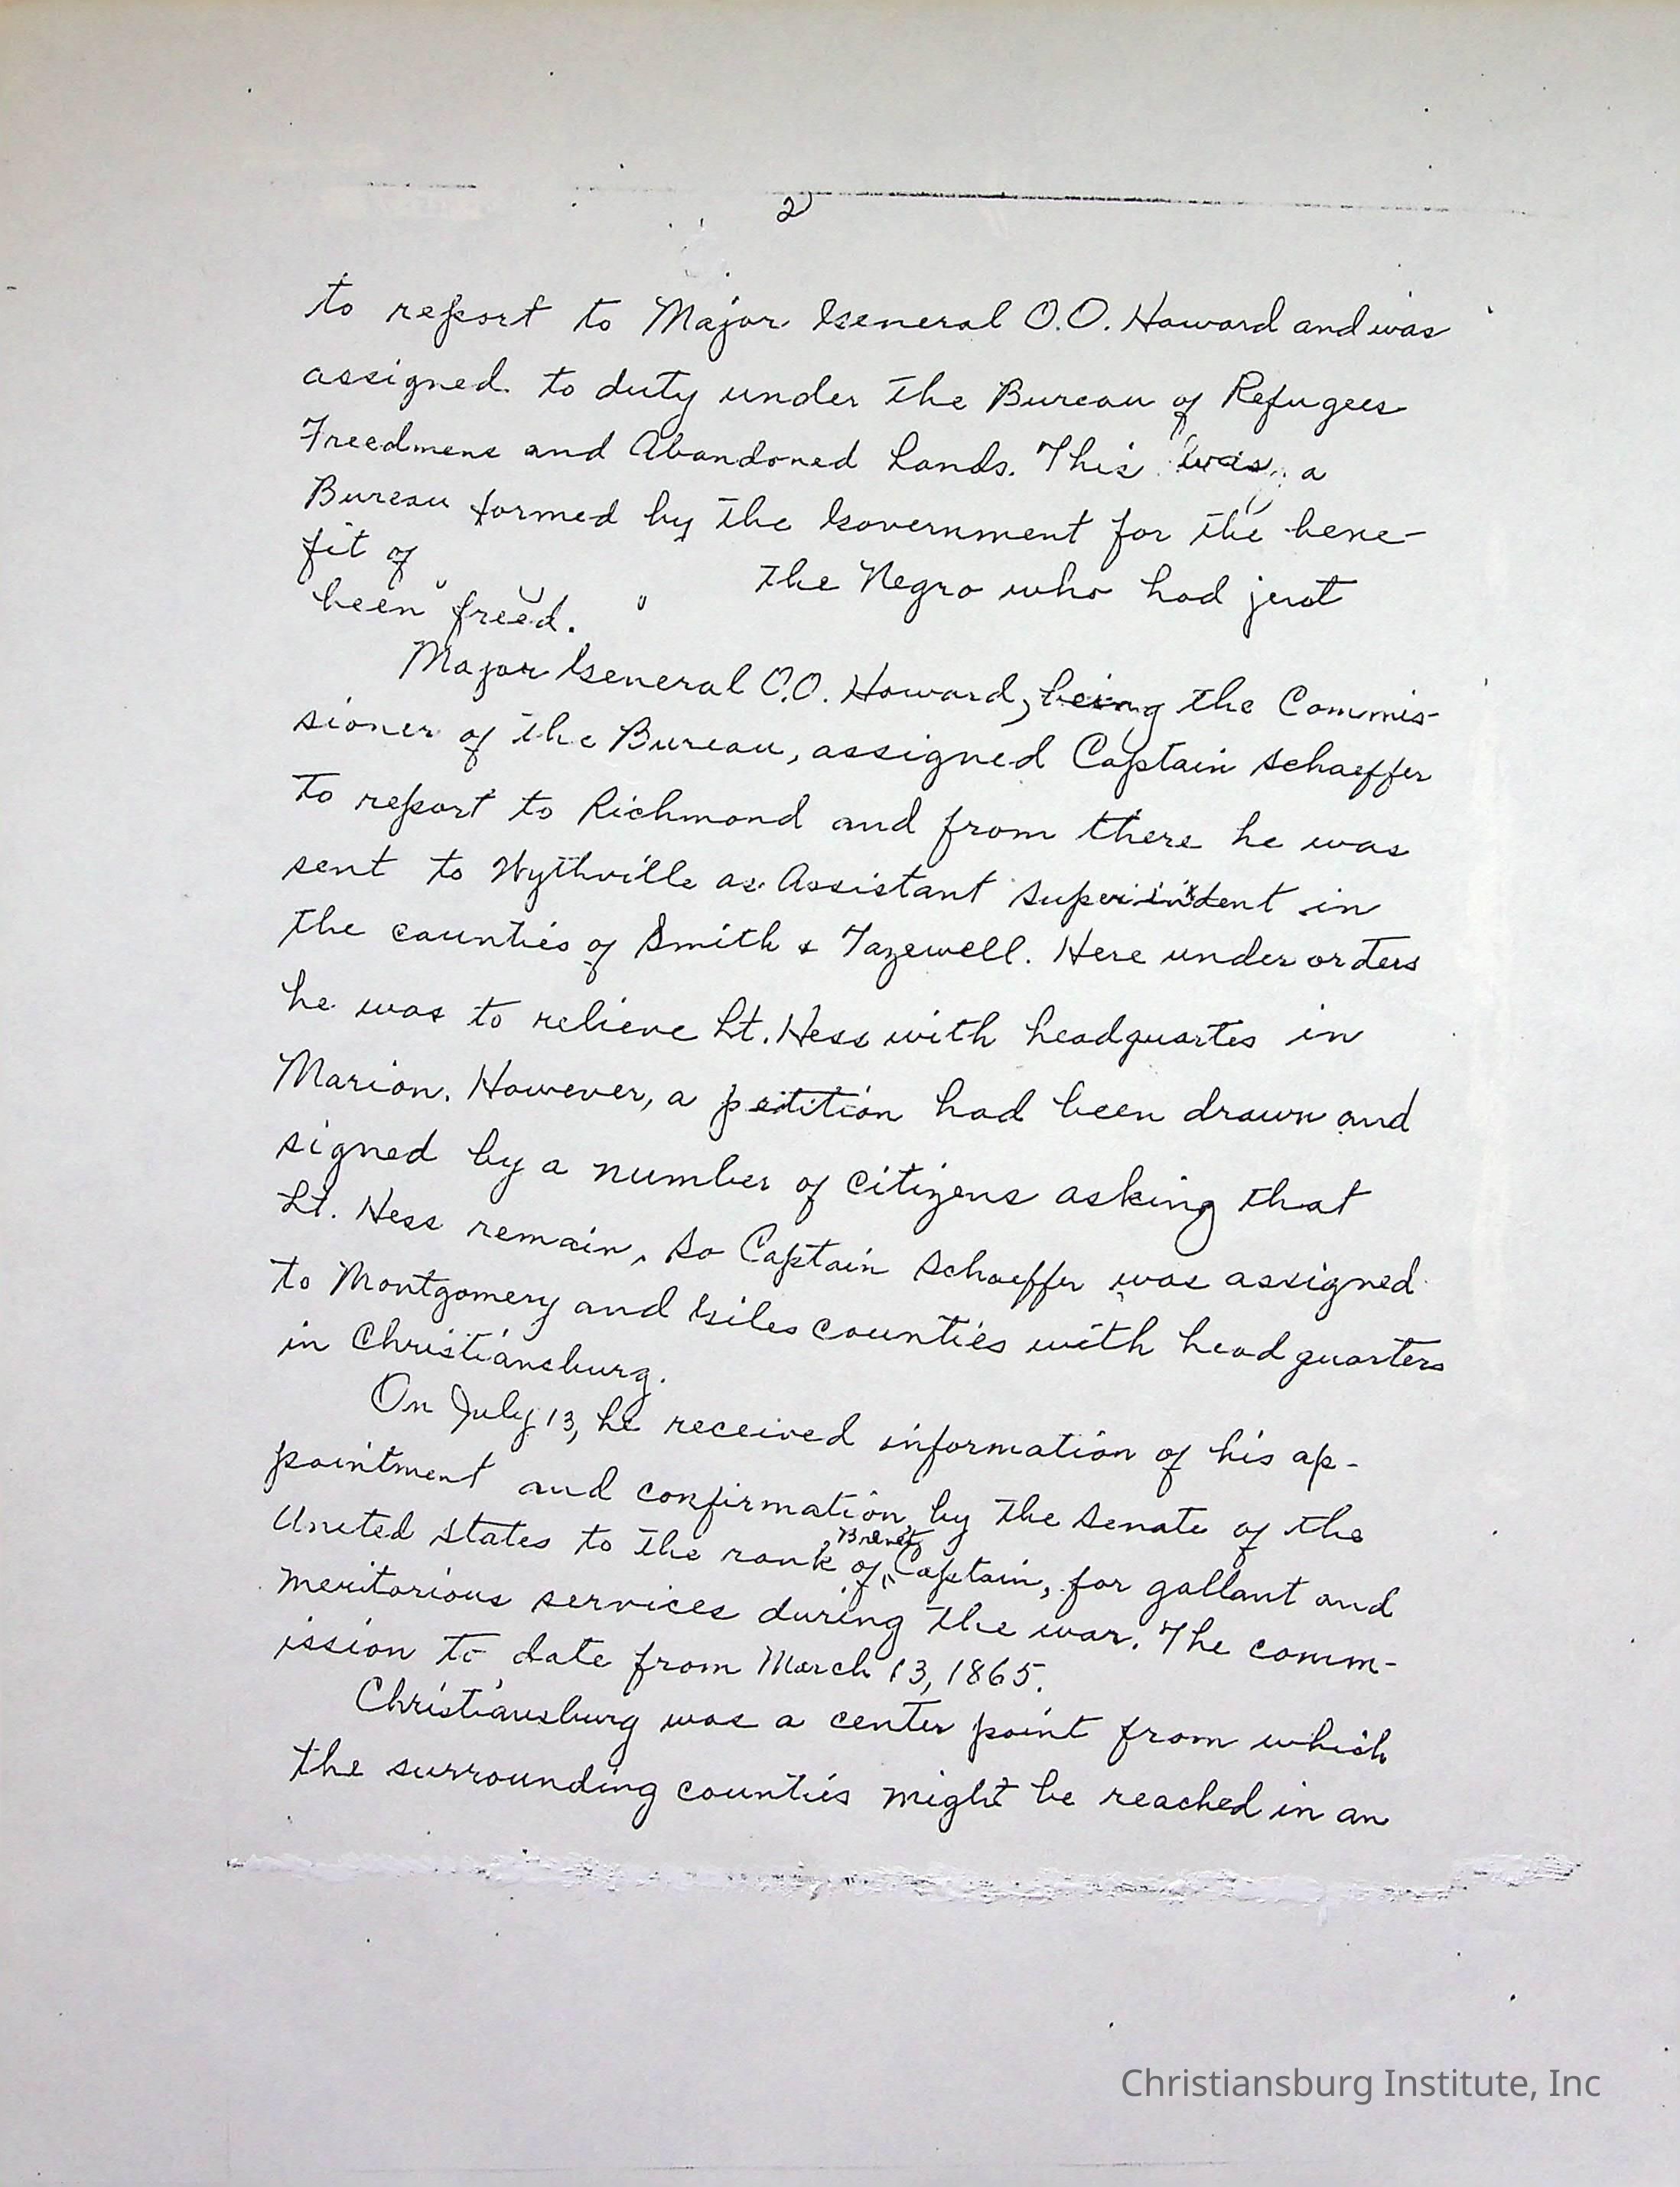 2
to report to Major General O.O. Howard and was
assigned to duty under the Bureau of Refugees
Freedmens and Abandoned Lands. This was a
Bureau formed by the Government for the bene-
fit of the Negro who had just
been freed.
Major General O.O. Howard, being the Commis-
sioner of the Bureau, assigned Captain Schaeffer
to report to Richmond and from there he was
sent to Wythville as Assistant Superintdent in
the counties of Smith & Tazewell. Here under orders
he was to relieve Lt. Hess with headquartes in
Marion. However, a petition had been drawn and
signed by a number of citizens asking that
Lt. Hess remain, so Captain Schaeffer was assigned
to Montgomery and Giles counties with headquarters
in Christiansburg.
On July 13, he received information of his ap-
pointment and confirmation by the Senate of the
United States to the rank of Brevet Captain, for gallant and
meritorious services during the war. The comm-
ission to date from March 13, 1865.
Christiansburg was a center point from which
the surrounding counties might be reached in an
Christiansburg Institute, Inc